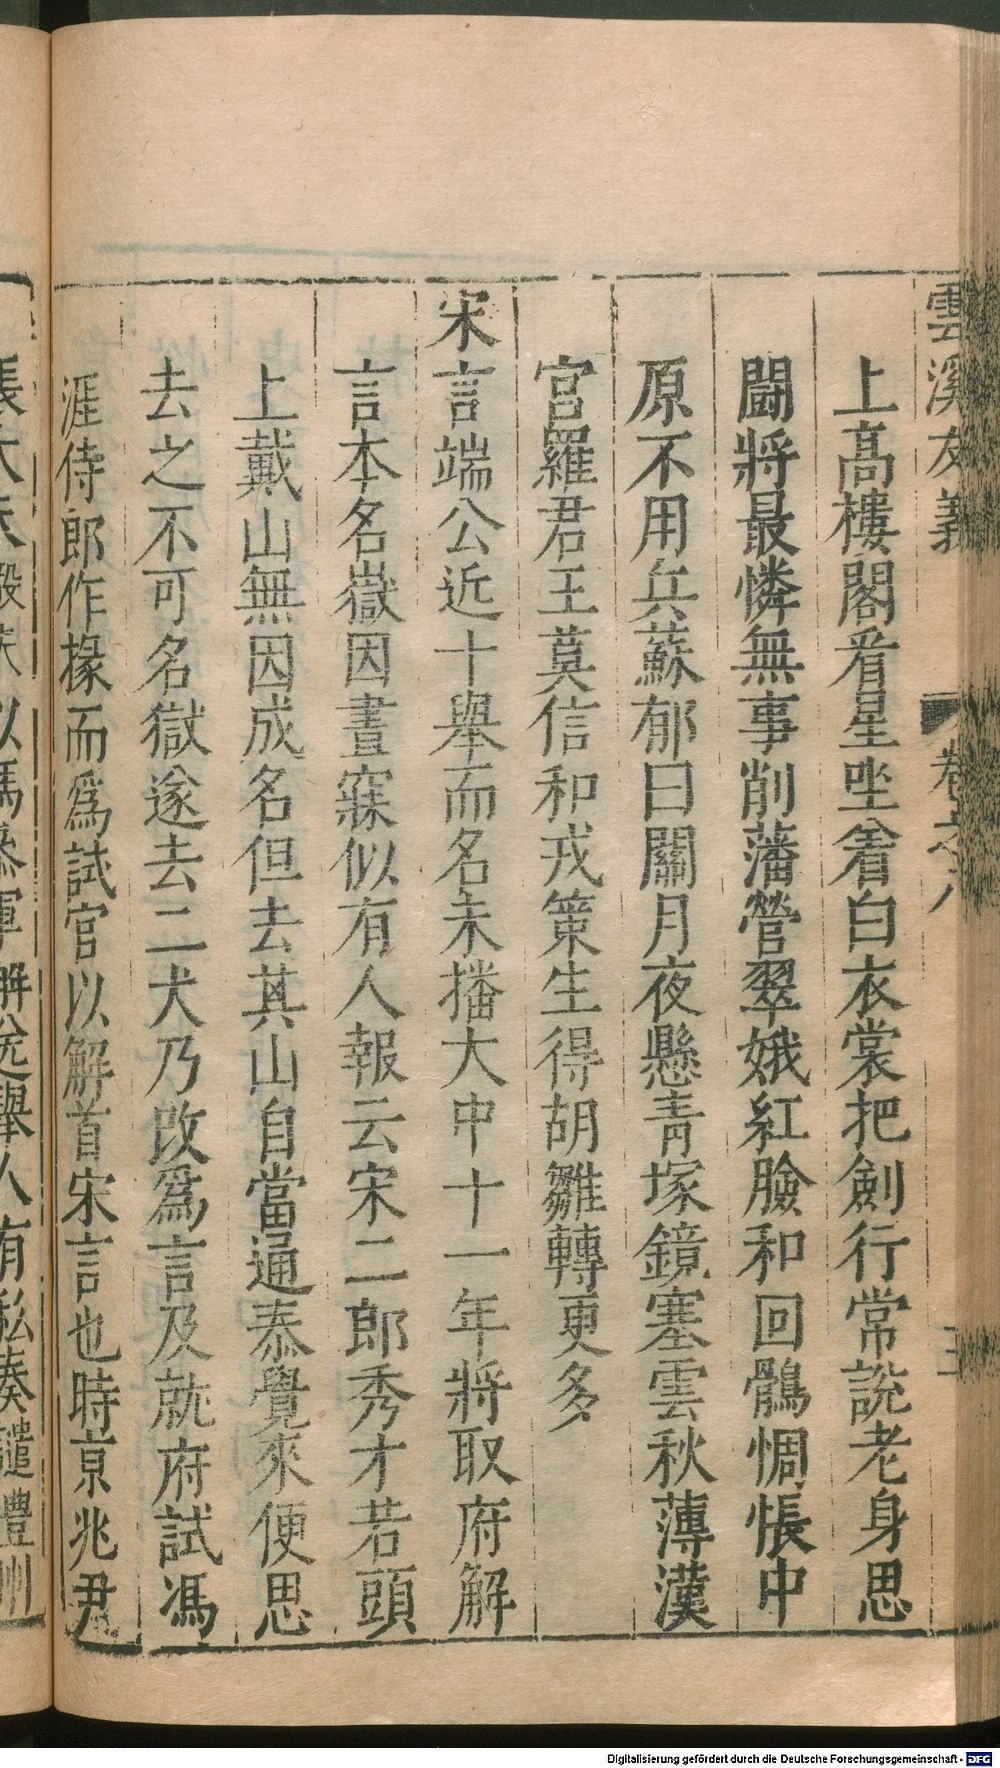 雲溪友義 卷之八 三
上髙樓閣看星坐着白衣裳把劍行常說老身思
鬬將最憐無事削藩營翠娥紅臉和回鶻惆悵中
原不用兵蘇郁曰關月夜懸青塚鏡塞雲秋薄漢
宮羅君王莫信和戎策生得胡雛轉更多
宋言端公近十舉而名未播大中十一年將取府解
言本名嶽因晝寐似有人報云宋二郎秀才若頭
上戴山無因成名但去其山自當通泰覺來便思
去之不可名獄遂去二犬乃改爲言及就府試馮
涯侍郎作掾而爲試官以解首宋言也時亰兆尹
以馮叅軍解送舉人有私奏譴澧州
Digitalisierung gefördert durch die Deutsche Forschungsgemeinschaft - DFG